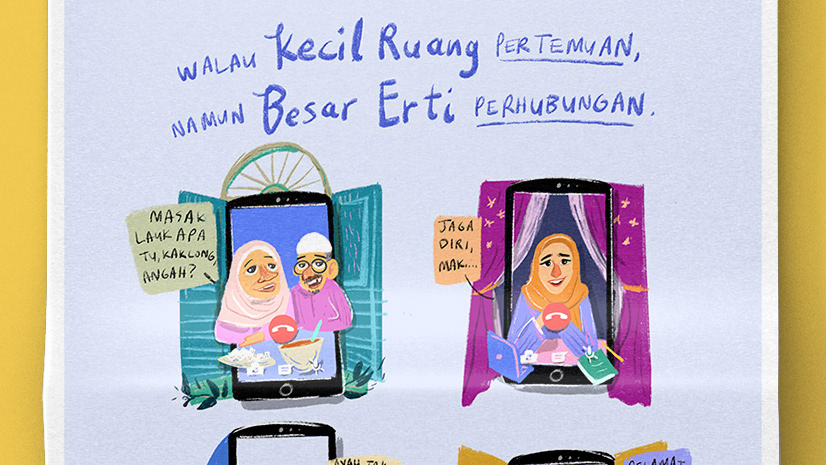 WALAU Kecil Ruang PERTEMUAN,
NAMUN Besar Erti PERHUBUNGAN.
MASAK
LAUK APA
TU, KAKLONG,
ANGAH?
JAGA
DIRI,
MAK...
AYAH